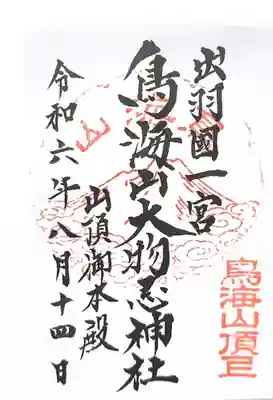 出羽國一宮
鳥海山大物忌神社
山頂御本殿
令和六年八月十四日
鳥海山頂上